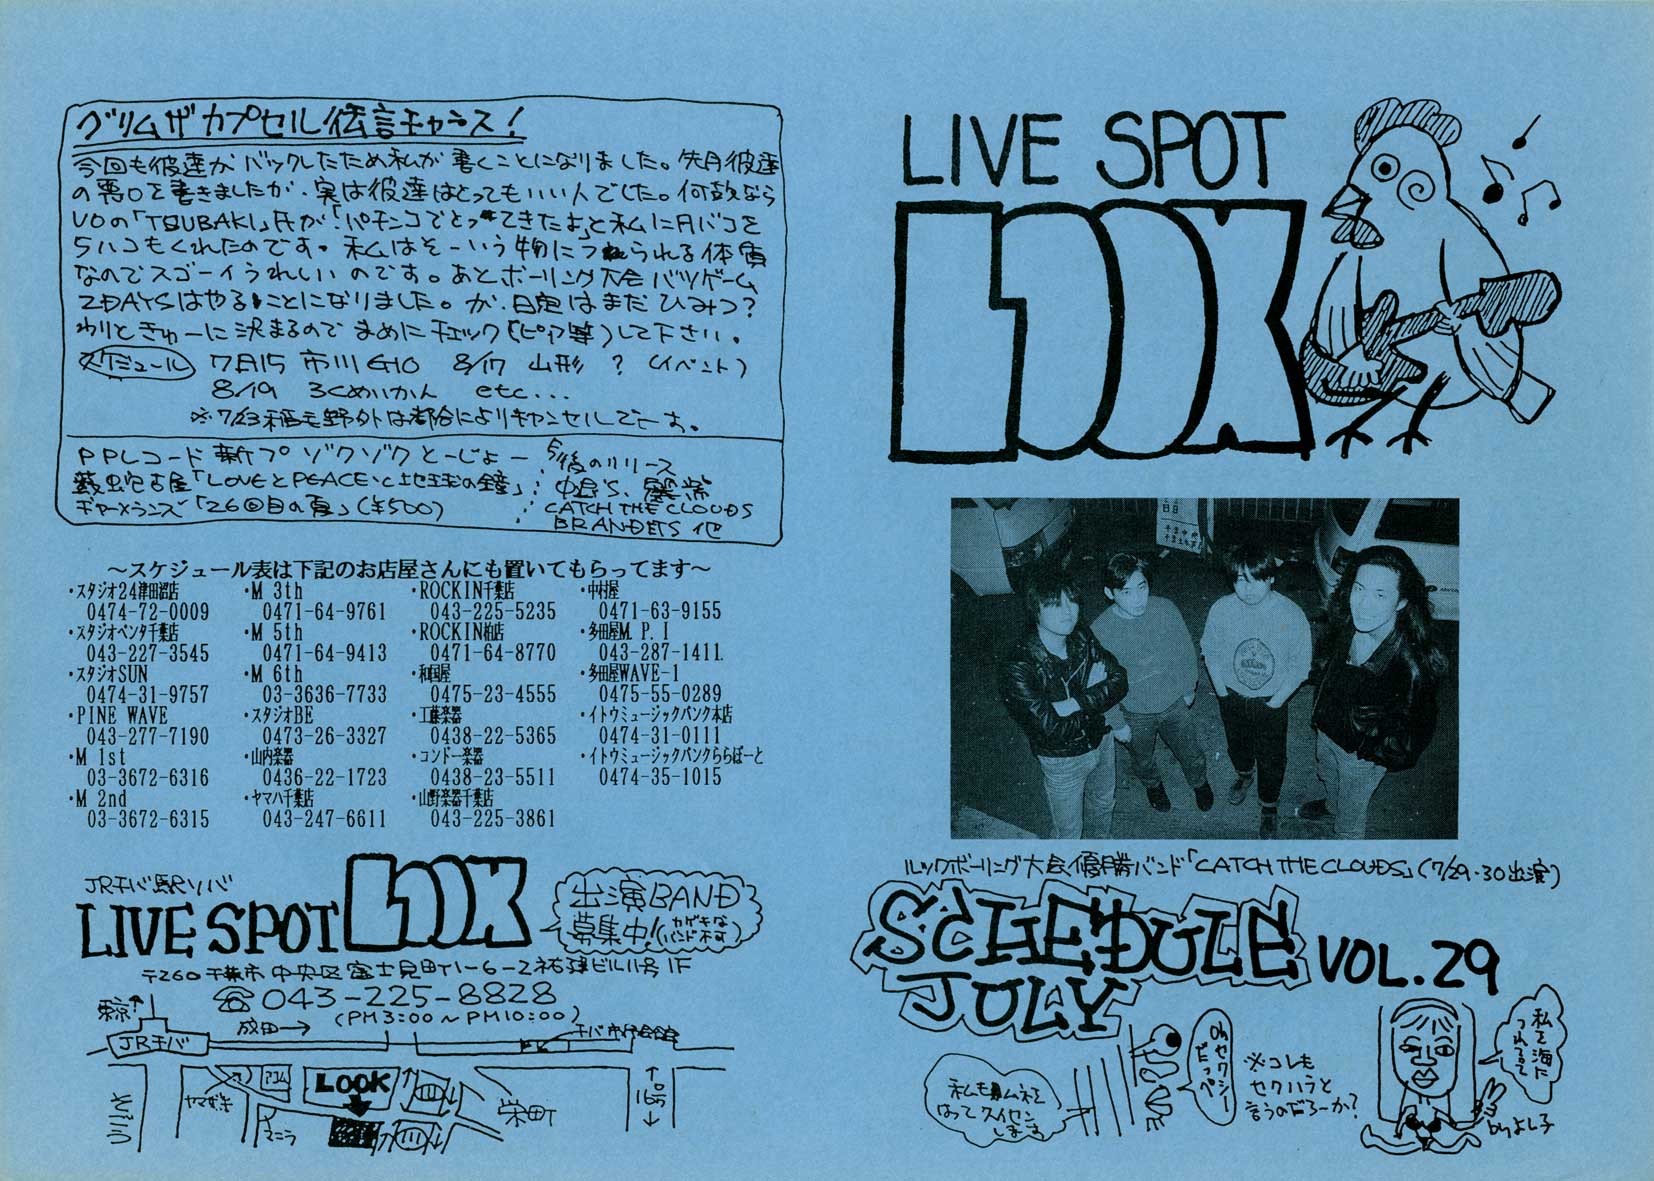 グリムザカプセル伝言チャンス!
今回も彼達がバックレたため私が書くことになりました。先月彼達
の悪口を書きましたが、実は彼達はとってもいい人でした。何故なら
VOの「TSUBAKI」氏が「パチンコでとってきたよ」と私にタバコを
5ハコもくれたのです。私はそーいう物につられる体質
なのでスゴーイうれしいのです。あとボーリング大会バツゲーム
2DAYSはやることになりました。が、日程はまだひみつ?
わりときゅーに決まるのでまめにチェック(ピア等)して下さい。
スケジュール 7月15 市川GIO 8/17 山形 ? (イベント)
8/19 ろくめいかん etc...
※7/23稲毛野外は都合によりキャンセルでーす。
PPレコード新プ ゾクゾクとーじょー
「LOVEとPEACEと地球の鐘」
ギャーメランズ「26回目の夏」(¥500)
今後のリリース
中島's、麗
CATCH THE CLOUDS
BRANDETS 他
～スケジュール表は下記のお店屋さんにも置いてもらってます～
・スタジオ24津田沼店
0474-72-0009
・スタジオペンタ千葉店
043-227-3545
・スタジオSUN
0474-31-9757
・PINE WAVE
043-277-7190
・M 1st
03-3672-6316
・M 2nd
03-3672-6315
・M 3th
0471-64-9761
・M 5th
0471-64-9413
・M 6th
03-3636-7733
・スタジオBE
0473-26-3327
・山内楽器
0436-22-1723
・ヤマハ千葉店
043-247-6611
・ROCKIN千葉店
043-225-5235
・ROCKIN柏店
0471-64-8770
・和国屋
0475-23-4555
・工藤楽器
0438-22-5365
・コンドー楽器
0438-23-5511
・山野楽器千葉店
043-225-3861
・中村屋
0471-63-9155
・多田屋M.P.I
043-287-1411.
・多田屋WAVE-1
0475-55-0289
・イトウミュージックバンク本店
0474-31-0111
・イトウミュージックバンクららぽーと
0474-35-1015
JRチバ駅ソバ
LIVE SPOT LOOK
出演BAND
募集中!(カゲキなバンド不可)
〒260 千葉市中央区富士見町1-6-2 祐建ビル11号1F
☎043-225-8828
(PM3:00～PM10:00)
東京↑
成田→
JRチバ
ヤマザキ
アコム
LOOK
マニラ
栄町
16号
LIVE SPOT
LOOK
ルックボーリング大会優勝バンド「CATCH THE CLOUDS」(7/29・30出演)
SCHEDULE
JULY
VOL.29
私もムネを
はってスイセン
します
Ohセクシー
だっペ
※コレも
セクハラと
言うのだろーか?
私を海に
つれてって
byよし子